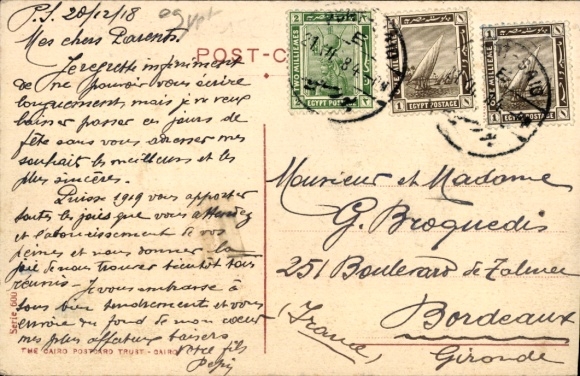 P.S. 20/12/18
egypt
Mes chers Parents.
POST-C
Je regrette infiniment
de ne pouvoir vous écrire
longuement mais je ne veux
laisser passer ces jours de
fête sans vous adresser mes
souhaits les meilleurs et les
plus sincères.
Puisse 1919 vous apporter
toutes les joies que vous attendez
et l'aboutissement de vos
peines et nous donner la
joie de nous trouver bientôt tous
réunis. Je vous embrasse à
tous bien tendrement et vous
envoie du fond de mon coeur
mes plus affectueux baisers
Votre fils
Serie 600
THE CAIRO POSTCARD TRUST - CAIRO
2 2
TWO MILLIEMES
EGYPT POSTAGE
1 1
EGYPT POSTAGE
1 1
ONE MILLIEME
EGYPT POSTAGE
PORT-SAID
Monsieur et Madame
G. Broquedis
251 Boulevard de Talence
Bordeaux
(France)
Gironde